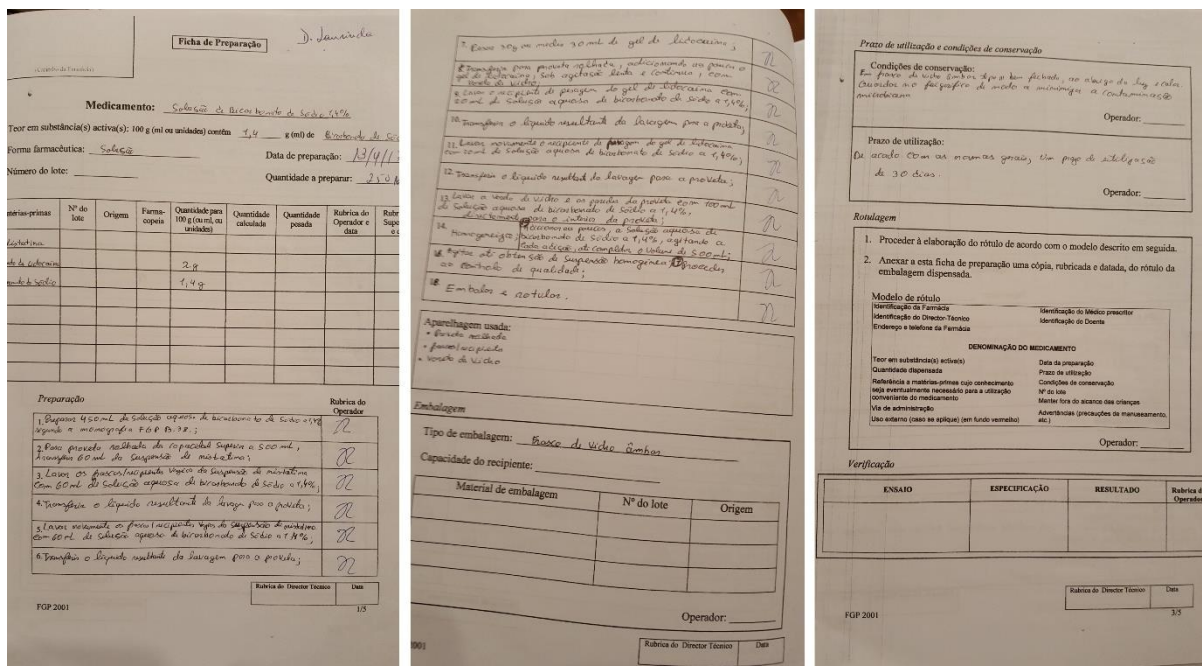 Ficha de Preparação
D. Laurinda
Medicamento: Solução de Bicarbonato de Sódio 1,4%
Teor em substância(s) activa(s): 100 g (ml ou unidades) contêm 1,4 g (ml) de Bicarbonato de Sódio
Forma farmacêutica: Solução
Data de preparação: 13/4/1
Número do lote:
Quantidade a preparar: 250
matérias-primas
Nº do lote
Origem
Farma-copeia
Quantidade para 100 g (ou ml, ou unidades)
Quantidade calculada
Quantidade pesada
Rubrica do Operador e data
2 g
1,4 g
Preparação
Rubrica do Operador
1. Preparar 450 mL de solução aquosa de bicarbonato de sódio a 1,4%
segundo a monografia FGP
2. Para proveta rolhada de capacidade superior a 500 mL,
transferir 60 mL da suspensão de nistatina;
3. Lavar os frascos/recipientes vazios da suspensão de nistatina
com 60 mL de solução aquosa de bicarbonato de sódio a 1,4%;
4. Transferir o líquido resultante da lavagem para a proveta;
5. Lavar novamente os frascos/recipientes vazios da suspensão de nistatina
com 60 mL de solução aquosa de bicarbonato de sódio a 1,4%;
6. Transferir o líquido resultante da lavagem para a proveta;
Rubrica do Director Técnico
Data
FGP 2001
1/5
7. Pesar 30g ou medir 30 mL de gel de lidocaína;
8. Transferir para proveta rolhada, adicionando aos poucos o
gel de lidocaína, sob agitação lenta e contínua, com
vareta de vidro;
9. Lavar o recipiente de pesagem do gel de lidocaína com
20 mL de solução aquosa de bicarbonato de sódio a 1,4%;
10. Transferir o líquido resultante da lavagem para a proveta;
11. Lavar novamente o recipiente de pesagem do gel de lidocaína
com 20 mL de solução aquosa de bicarbonato de sódio a 1,4%;
12. Transferir o líquido resultante da lavagem para a proveta;
13. Lavar a vareta de vidro e as paredes da proveta com 100 mL
de solução aquosa de bicarbonato de sódio a 1,4%,
directamente para o interior da proveta;
14. Homogeneizar, adicionar aos poucos, a solução aquosa de
bicarbonato de sódio a 1,4%, agitando a
cada adição, até completar o volume de 500 mL;
Agitar até obtenção de suspensão homogénea; Proceder
ao controlo de qualidade;
Embalar e rotular.
Aparelhagem usada:
• Proveta rolhada
• frasco/recipiente
• Vareta de vidro
Embalagem
Tipo de embalagem: Frasco de vidro âmbar
Capacidade do recipiente:
Material de embalagem
Nº do lote
Origem
Operador:
2001
Rubrica do Director Técnico
Data
Prazo de utilização e condições de conservação
Condições de conservação:
Em frasco de vidro âmbar tipo bem fechado, ao abrigo da luz e calor
Guardar no frigorífico de modo a minimizar a contaminação
microbiana
Operador:
Prazo de utilização:
De acordo com as normas gerais, Um prazo de utilização
de 30 dias.
Operador:
Rotulagem
1. Proceder à elaboração do rótulo de acordo com o modelo descrito em seguida.
2. Anexar a esta ficha de preparação uma cópia, rubricada e datada, do rótulo da
embalagem dispensada.
Modelo de rótulo
Identificação da Farmácia
Identificação do Médico prescritor
Identificação do Director-Técnico
Identificação do Doente
Endereço e telefone da Farmácia
DENOMINAÇÃO DO MEDICAMENTO
Teor em substância(s) activa(s)
Data da preparação
Quantidade dispensada
Prazo de utilização
Referência a matérias-primas cujo conhecimento
seja eventualmente necessário para a utilização
conveniente do medicamento
Condições de conservação
Nº do lote
Manter fora do alcance das crianças
Via de administração
Advertências (precauções de manuseamento,
etc.)
Uso externo (caso se aplique) (em fundo vermelho)
Operador:
Verificação
ENSAIO
ESPECIFICAÇÃO
RESULTADO
Rubrica do Operador
Rubrica do Director Técnico
Data
FGP 2001
3/5